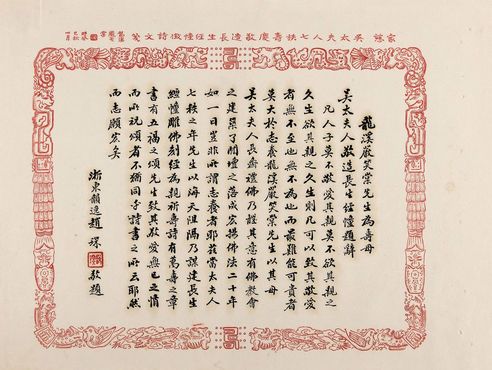 家慈 吳太夫人七秩壽慶敬造長生經幢徵詩文箋
龍溪嚴笑棠先生為壽母
吳太夫人敬造長生經幢題辭
凡人子莫不敬愛其親莫不欲其親之
久生欲其親之久生則凡可以致其敬愛
者無不至也無不為也而最難能可貴者
莫大於志養龍溪嚴笑棠先生以其母
吳太夫人長齋禮佛乃證其意有佛教會
之建築了閒壇之落成宏揚佛法二十年
如一日豈非所謂志養者耶茲當太夫人
七秩之年先生以海天阻隔乃謀建長生
經幢雕佛刻經為親祈壽詩有萬壽之章
書有五福之頌先生致其敬愛無已之情
而所祝頌者不猶同乎詩書之所云耶然
而志願宏矣
浙東韻逸趙琛敬題